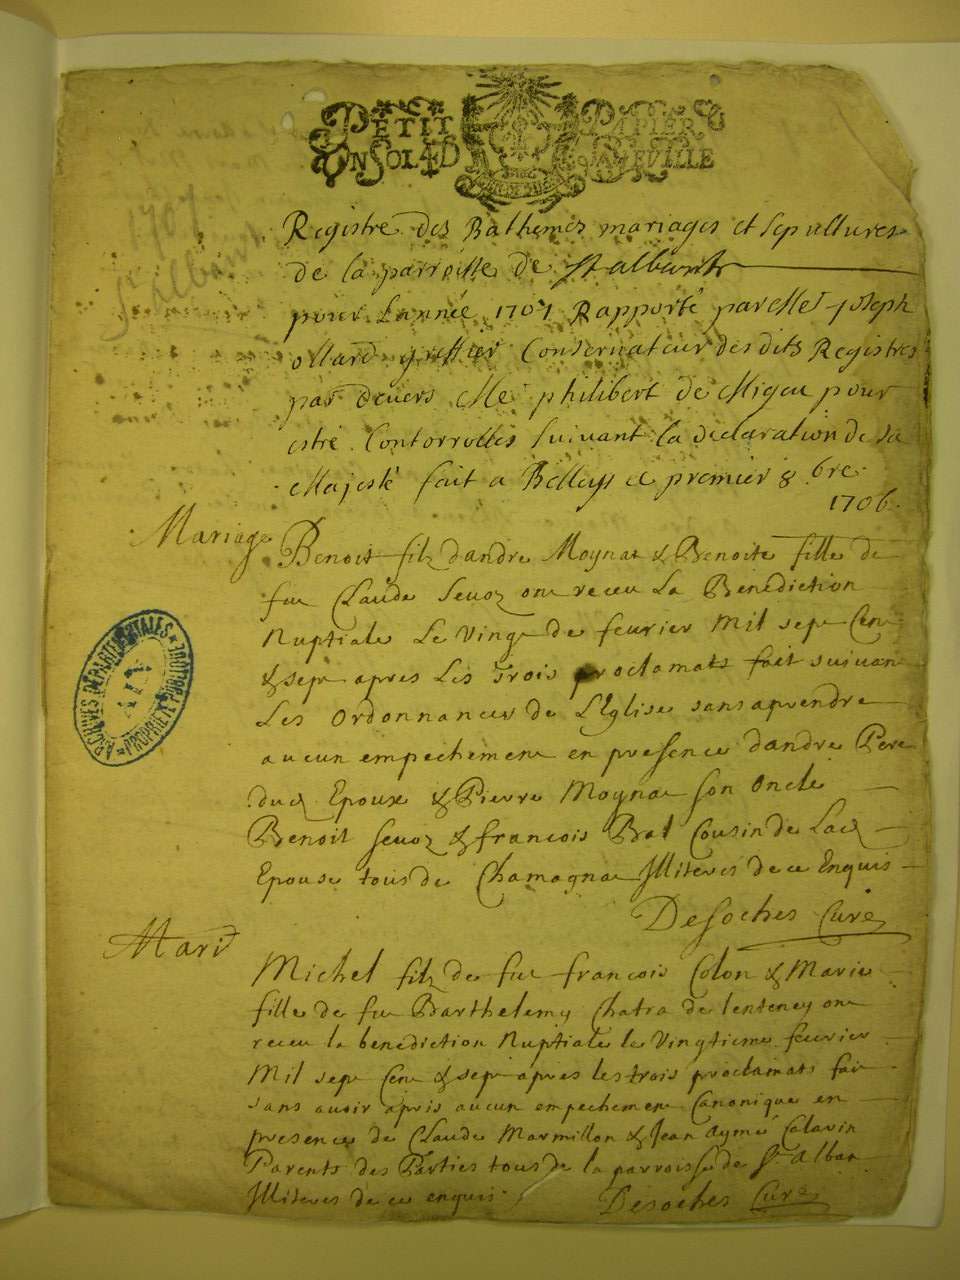 PETIT PAPIER
UN SOL 4 D DE VILLE
1707
St Albant
Registre des Bathemes mariages et sepultures
de la parroisse de st albant
pour Lannée 1707 Rapporté par Me joseph
ollard greffier Conservateur des dits Registres
par devers Me philibert de Migeu pour
estre Contorrolles suivant la declaration de sa
Majesté fait a Belleys ce premier 8bre
1706
Mariage
Benoit filz dandre Moynat & Benoite fille de
fut Claude sevoz ont receu La Benediction
Nuptiale Le vingt de fevrier Mil sept Cent
& sept apres Les trois proclamats fait suivant
Les Ordonnances de L'Eglise sans aprendre
aucun empechement en presence dandre Pere
dud Epoux & Pierre Moynat son oncle
Benoit sevoz & francois Bal Cousin de Lad
Epouse tous de Chamagnat Illiteres de ce Enquis
Desoches Curé
Mari
Michel filz de fut francois Colon & Marie
fille de fut Barthelemy Chatra de lenteney ont
receu la benediction Nuptiale le vingtieme fevrier
Mil sept Cent & sept apres les trois proclamats fait
sans avoir apris aucun empechement Canonique en
presence de Claude Marmillon & Jean Aymé Calavin
Parents des Parties tous de la parroisse de St Alban
Illiteres de ce enquis
Desoches Curé
ARCHIVES DÉPARTEMENTALES
AIN
PROPRIÉTÉ PUBLIQUE